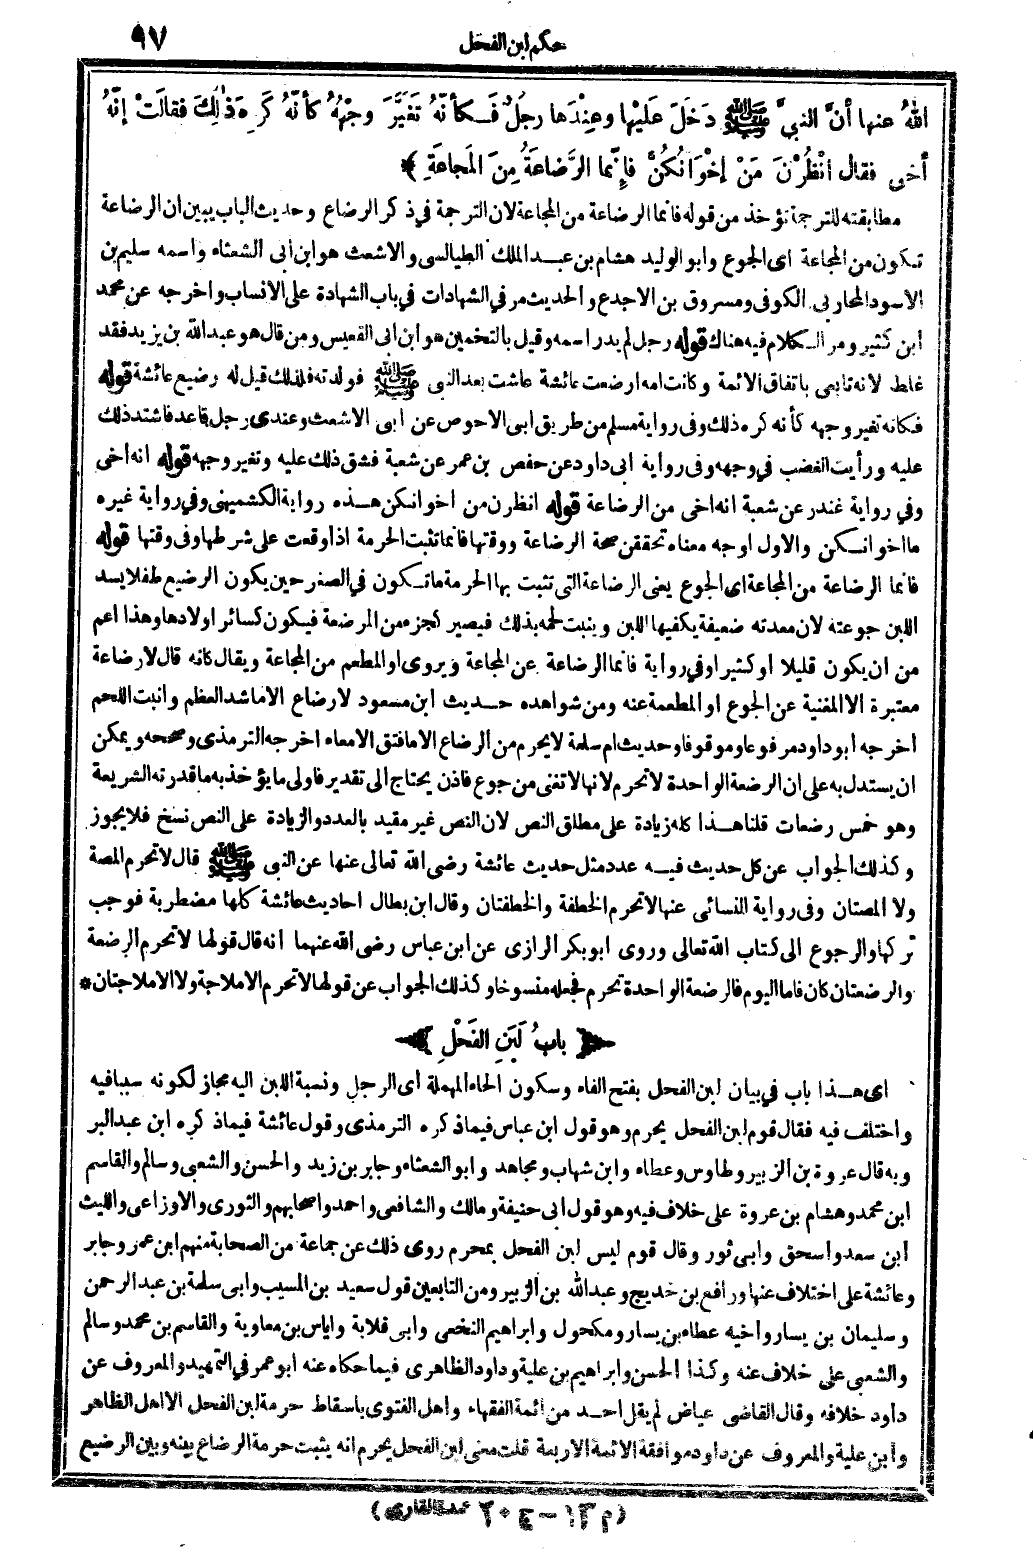 حكم لبن الفحل
٩٧
اللهُ عنها أنَّ النبيَّ ﷺ دَخَلَ عَلَيْها وعِنْدَها رجُلٌ فَكأنَّهُ تَغَيَّرَ وجْهُهُ كأنَّهُ كَرِهَ ذَلِكَ فقالَتْ إنَّهُ
أخى فقال انْظُرْنَ مَنْ إخْوَانُكُنَّ فإنَّما الرَّضاعَةُ مِنَ المَجاعَةِ *
مطابقته للترجمة تؤخذ من قوله فانما الرضاعة من المجاعة لان الترجمة في ذكر الرضاع وحديث الباب يبين ان الرضاعة
تكون من المجاعة اى الجوع وابو الوليد هشام بن عبد الملك الطيالسى والاشعث هو ابن ابى الشعثاء واسمه سليم بن
الاسود المحاربى الكوفى ومسروق بن الاجدع والحديث مر في الشهادات في باب الشهادة على الانساب واخرجه عن محمد
ابن كثير ومر الكلام فيه هناك قوله رجل لم يدر اسمه وقيل بالتخمين هو ابن ابى القعيس ومن قال هو عبد الله بن يزيد فقد
غلط لانه تابعى باتفاق الائمة وكانت امه ارضعت عائشة عاشت بعد النبى ﷺ فولدته فلذلك قيل له رضيع عائشة قوله
فكانه تغير وجهه كأنه كره ذلك وفى رواية مسلم من طريق ابى الاحوص عن ابى الاشعث وعندى رجل قاعد فاشتد ذلك
عليه ورأيت الغضب في وجهه وفى رواية ابى داود عن حفص بن عمر عن شعبة فشق ذلك عليه وتغير وجهه قوله انه اخى
وفي رواية غندر عن شعبة انه اخى من الرضاعة قوله انظرن من اخوانكن هذه رواية الكشميهنى وفي رواية غيره
ما اخوانكن والاول اوجه معناه تحققن صحة الرضاعة ووقتها فانما تثبت الحرمة اذا وقعت على شرطها وفى وقتها قوله
فانما الرضاعة من المجاعة اى الجوع يعنى الرضاعة التى تثبت بها الحرمة ما تكون في الصغر حين يكون الرضيع طفلا يسد
اللبن جوعته لان معدته ضعيفة يكفيها اللبن وينبت لحمه بذلك فيصير كجزء من المرضعة فيكون كسائر اولادها وهذا اعم
من ان يكون قليلا او كثيرا وفي رواية فانما الرضاعة عن المجاعة ويروى او المطعم من المجاعة ويقال كانه قال لا رضاعة
معتبرة الا المغنية عن الجوع او المطعمة عنه ومن شواهده حديث ابن مسعود لا رضاع الا ما شد العظم وانبت اللحم
اخرجه ابو داود مرفوعا وموقوفا وحديث ام سلمة لا يحرم من الرضاع الا ما فتق الامعاء اخرجه الترمذى وصححه ويمكن
ان يستدل به على ان الرضعة الواحدة لا تحرم لانها لا تغنى من جوع فاذن يحتاج الى تقدير فاولى ما يؤخذ به ما قدرته الشريعة
وهو خمس رضعات قلنا هذا كله زيادة على مطلق النص لان النص غير مقيد بالعدد والزيادة على النص نسخ فلا يجوز
وكذلك الجواب عن كل حديث فيه عدد مثل حديث عائشة رضى الله تعالى عنها عن النبى ﷺ قال لا تحرم المصة
ولا المصتان وفى رواية النسائى عنها لا تحرم الخطفة والخطفتان وقال ابن بطال احاديث عائشة كلها مضطربة فوجب
تركها والرجوع الى كتاب الله تعالى وروى ابو بكر الرازى عن ابن عباس رضى الله عنهما انه قال قولها لا تحرم الرضعة
والرضعتان كان فاما اليوم فالرضعة الواحدة تحرم فجعله منسوخا وكذلك الجواب عن قولها لا تحرم الاملاجة ولا الاملاجتان *
بابُ لَبَنِ الفَحْلِ
اى هذا باب في بيان لبن الفحل بفتح الفاء وسكون الحاء المهملة اى الرجل ونسبة اللبن اليه مجاز لكونه سببا فيه
واختلف فيه فقال قوم لبن الفحل يحرم وهو قول ابن عباس فيما ذكره الترمذى وقول عائشة فيما ذكره ابن عبد البر
وبه قال عروة بن الزبير وطاوس وعطاء وابن شهاب ومجاهد وابو الشعثاء وجابر بن زيد والحسن والشعبى وسالم والقاسم
ابن محمد وهشام بن عروة على خلاف فيه وهو قول ابى حنيفة ومالك والشافعى واحمد واصحابهم والثورى والاوزاعى والليث
ابن سعد واسحق وابى ثور وقال قوم ليس لبن الفحل بمحرم روى ذلك عن جماعة من الصحابة منهم ابن عمر وجابر
وعائشة على اختلاف عنها ورافع بن خديج وعبد الله بن الزبير ومن التابعين قول سعيد بن المسيب وابى سلمة بن عبد الرحمن
وسليمان بن يسار واخيه عطاء بن يسار ومكحول وابراهيم النخعى وابى قلابة واياس بن معاوية والقاسم بن محمد وسالم
والشعبى على خلاف عنه وكذا الحسن وابراهيم بن علية وداود الظاهرى فيما حكاه عنه ابو عمر في التمهيد والمعروف عن
داود خلافه وقال القاضى عياض لم يقل احد من ائمة الفقهاء واهل الفتوى باسقاط حرمة لبن الفحل الا اهل الظاهر
وابن علية والمعروف عن داود موافقة الائمة الاربعة قلت معنى لبن الفحل يحرم انه يثبت حرمة الرضاع بينه وبين الرضيع
(م ١٣ - ج ٢٠ عمدة القارى)